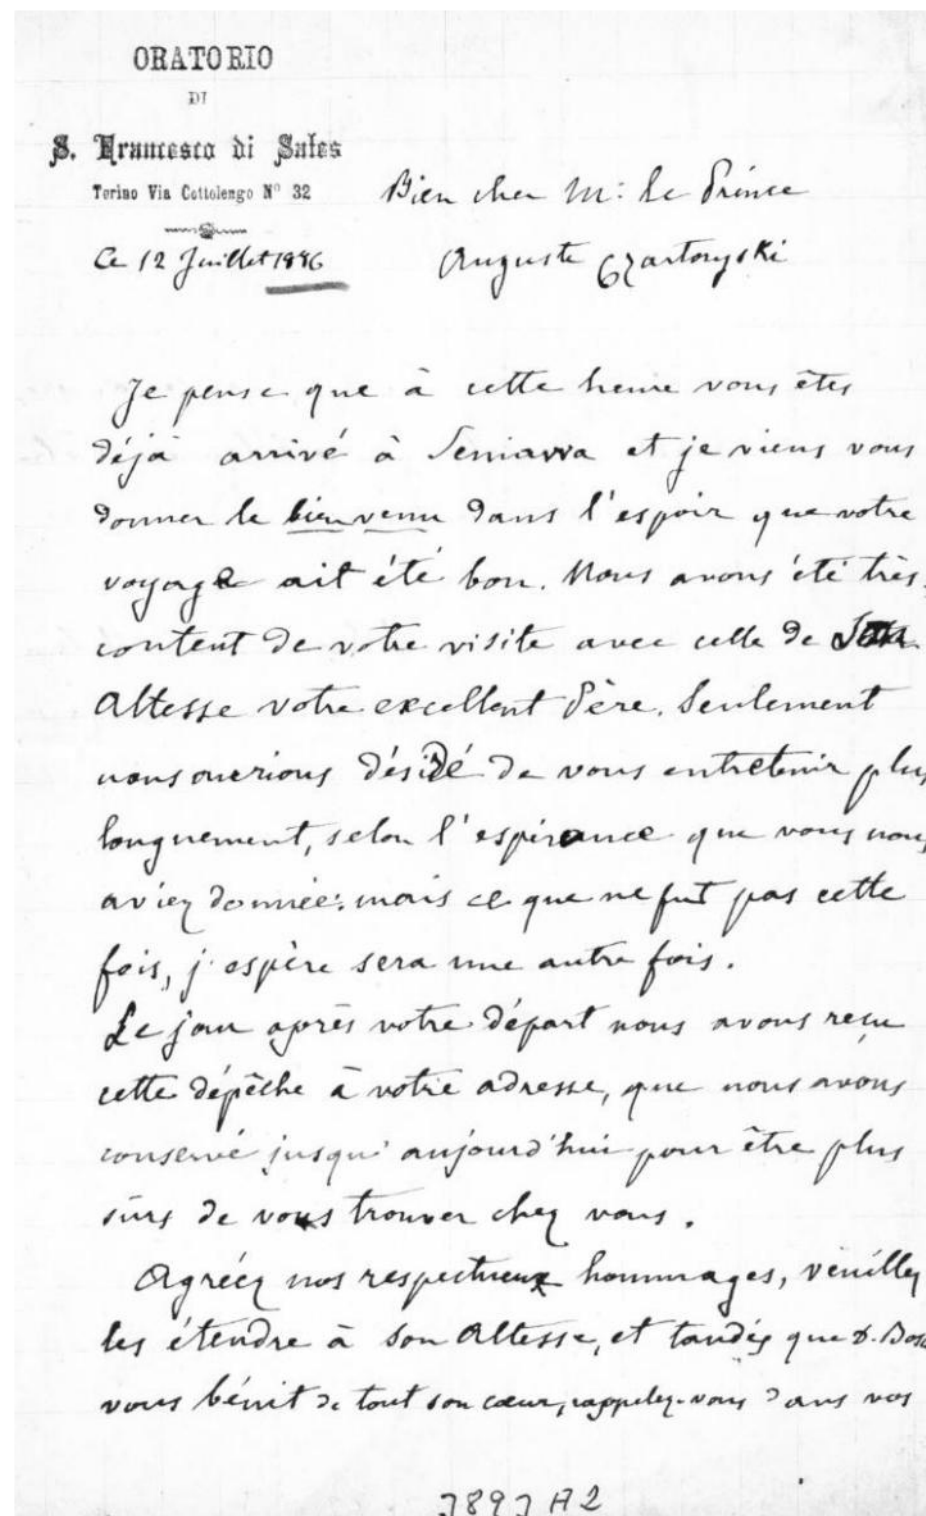 ORATORIO
DI
S. Francesco di Sales
Torino Via Cottolengo N° 32
Ce 12 Juillet 1886
Bien cher M: le Prince
Auguste Czartoryski
Je pense que à cette heure vous êtes
déjà arrivé à Seniavva et je viens vous
donner le bien venu dans l'espoir que votre
voyage ait été bon. Nous avons été très
content de votre visite avec celle de Son
Altesse votre excellent Père. Seulement
nous aurions désiré de vous entretenir plus
longuement, selon l'espérance que vous nous
aviez donnée: mais ce que ne fut pas cette
fois, j'espère sera une autre fois.
Le jour après votre départ nous avons reçu
cette dépêche à votre adresse, que nous avons
conservé jusqu'aujourd'hui pour être plus
sûrs de vous trouver chez vous.
Agréez nos respectueux hommages, veuillez
les étendre à Son Altesse, et tandis que D. Bosco
vous bénit de tout son cœur, rappelez-vous dans vos